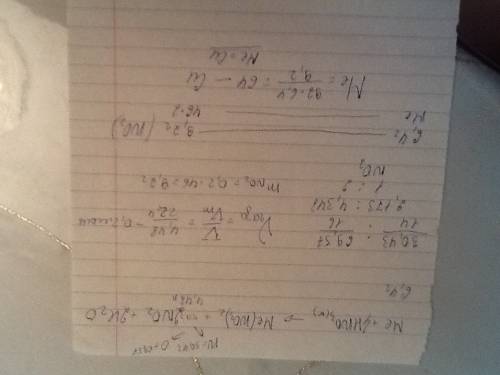 N=30,43 O=69,57
Me + 4HNO3(к) → Me(NO3)2 + 2NO2 + 2H2O
4,48л
6,4г
30,43/14 : 69,57/16
2,173 : 4,347
1 : 2
NO2
νгаз = V/Vm = 4,48/22,4 = 0,2 моль
mNO2 = 0,2 · 46 = 9,2г
6,4г — 9,2г (NO2)
Me — 46·2
Me = 92·6,4/9,2 = 64 — Cu
Me = Cu